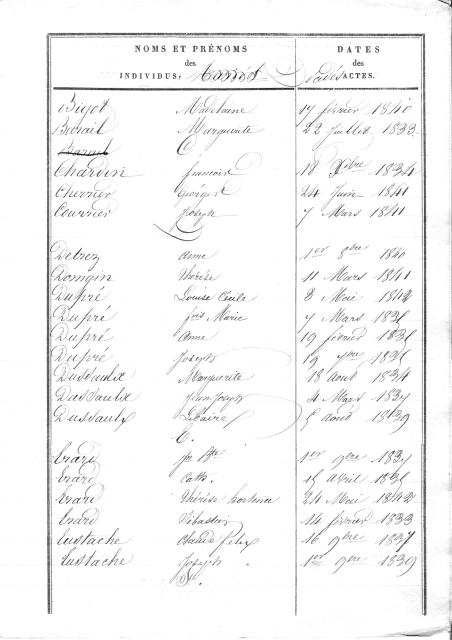 NOMS ET PRÉNOMS DATES
des des
INDIVIDUS, ACTES.
Bigot Madelaine 17 février 1840
Burail Marguerite 22 Juillet 1833
C.
Chardin francois 18 Xbre 1834
Chevrier Georges 24 Juin 1841
Courrier Joseph 7 Mars 1841
Detrez Anne 1er 8bre 1840
Domgin Thérèse 11 Mars 1841
Dupré Louise Cécile 3 Mai 1842
Dupré fois Marie 7 Mars 1835
Dupré Anne 19 février 1835
Dupré Joseph 19 1835
Dussaulx Marguerite 18 aout 1834
Dussaulx Jean Joseph 4 Mars 1837
Dussaulx 5 aout 1839
E.
Erard Jn Bte 1er 9bre 1835
Erard Cath. 15 avril 1835
Erard Thérèse hortence 24 Mai 1842
Erard Sébastien 14 février 1833
Eustache Claude félix 16 9bre 1837
Eustache Joseph 1er 9bre 1839